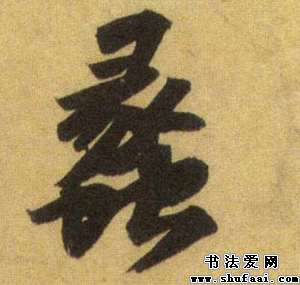 蠡
书法爱网
www.shufaai.com